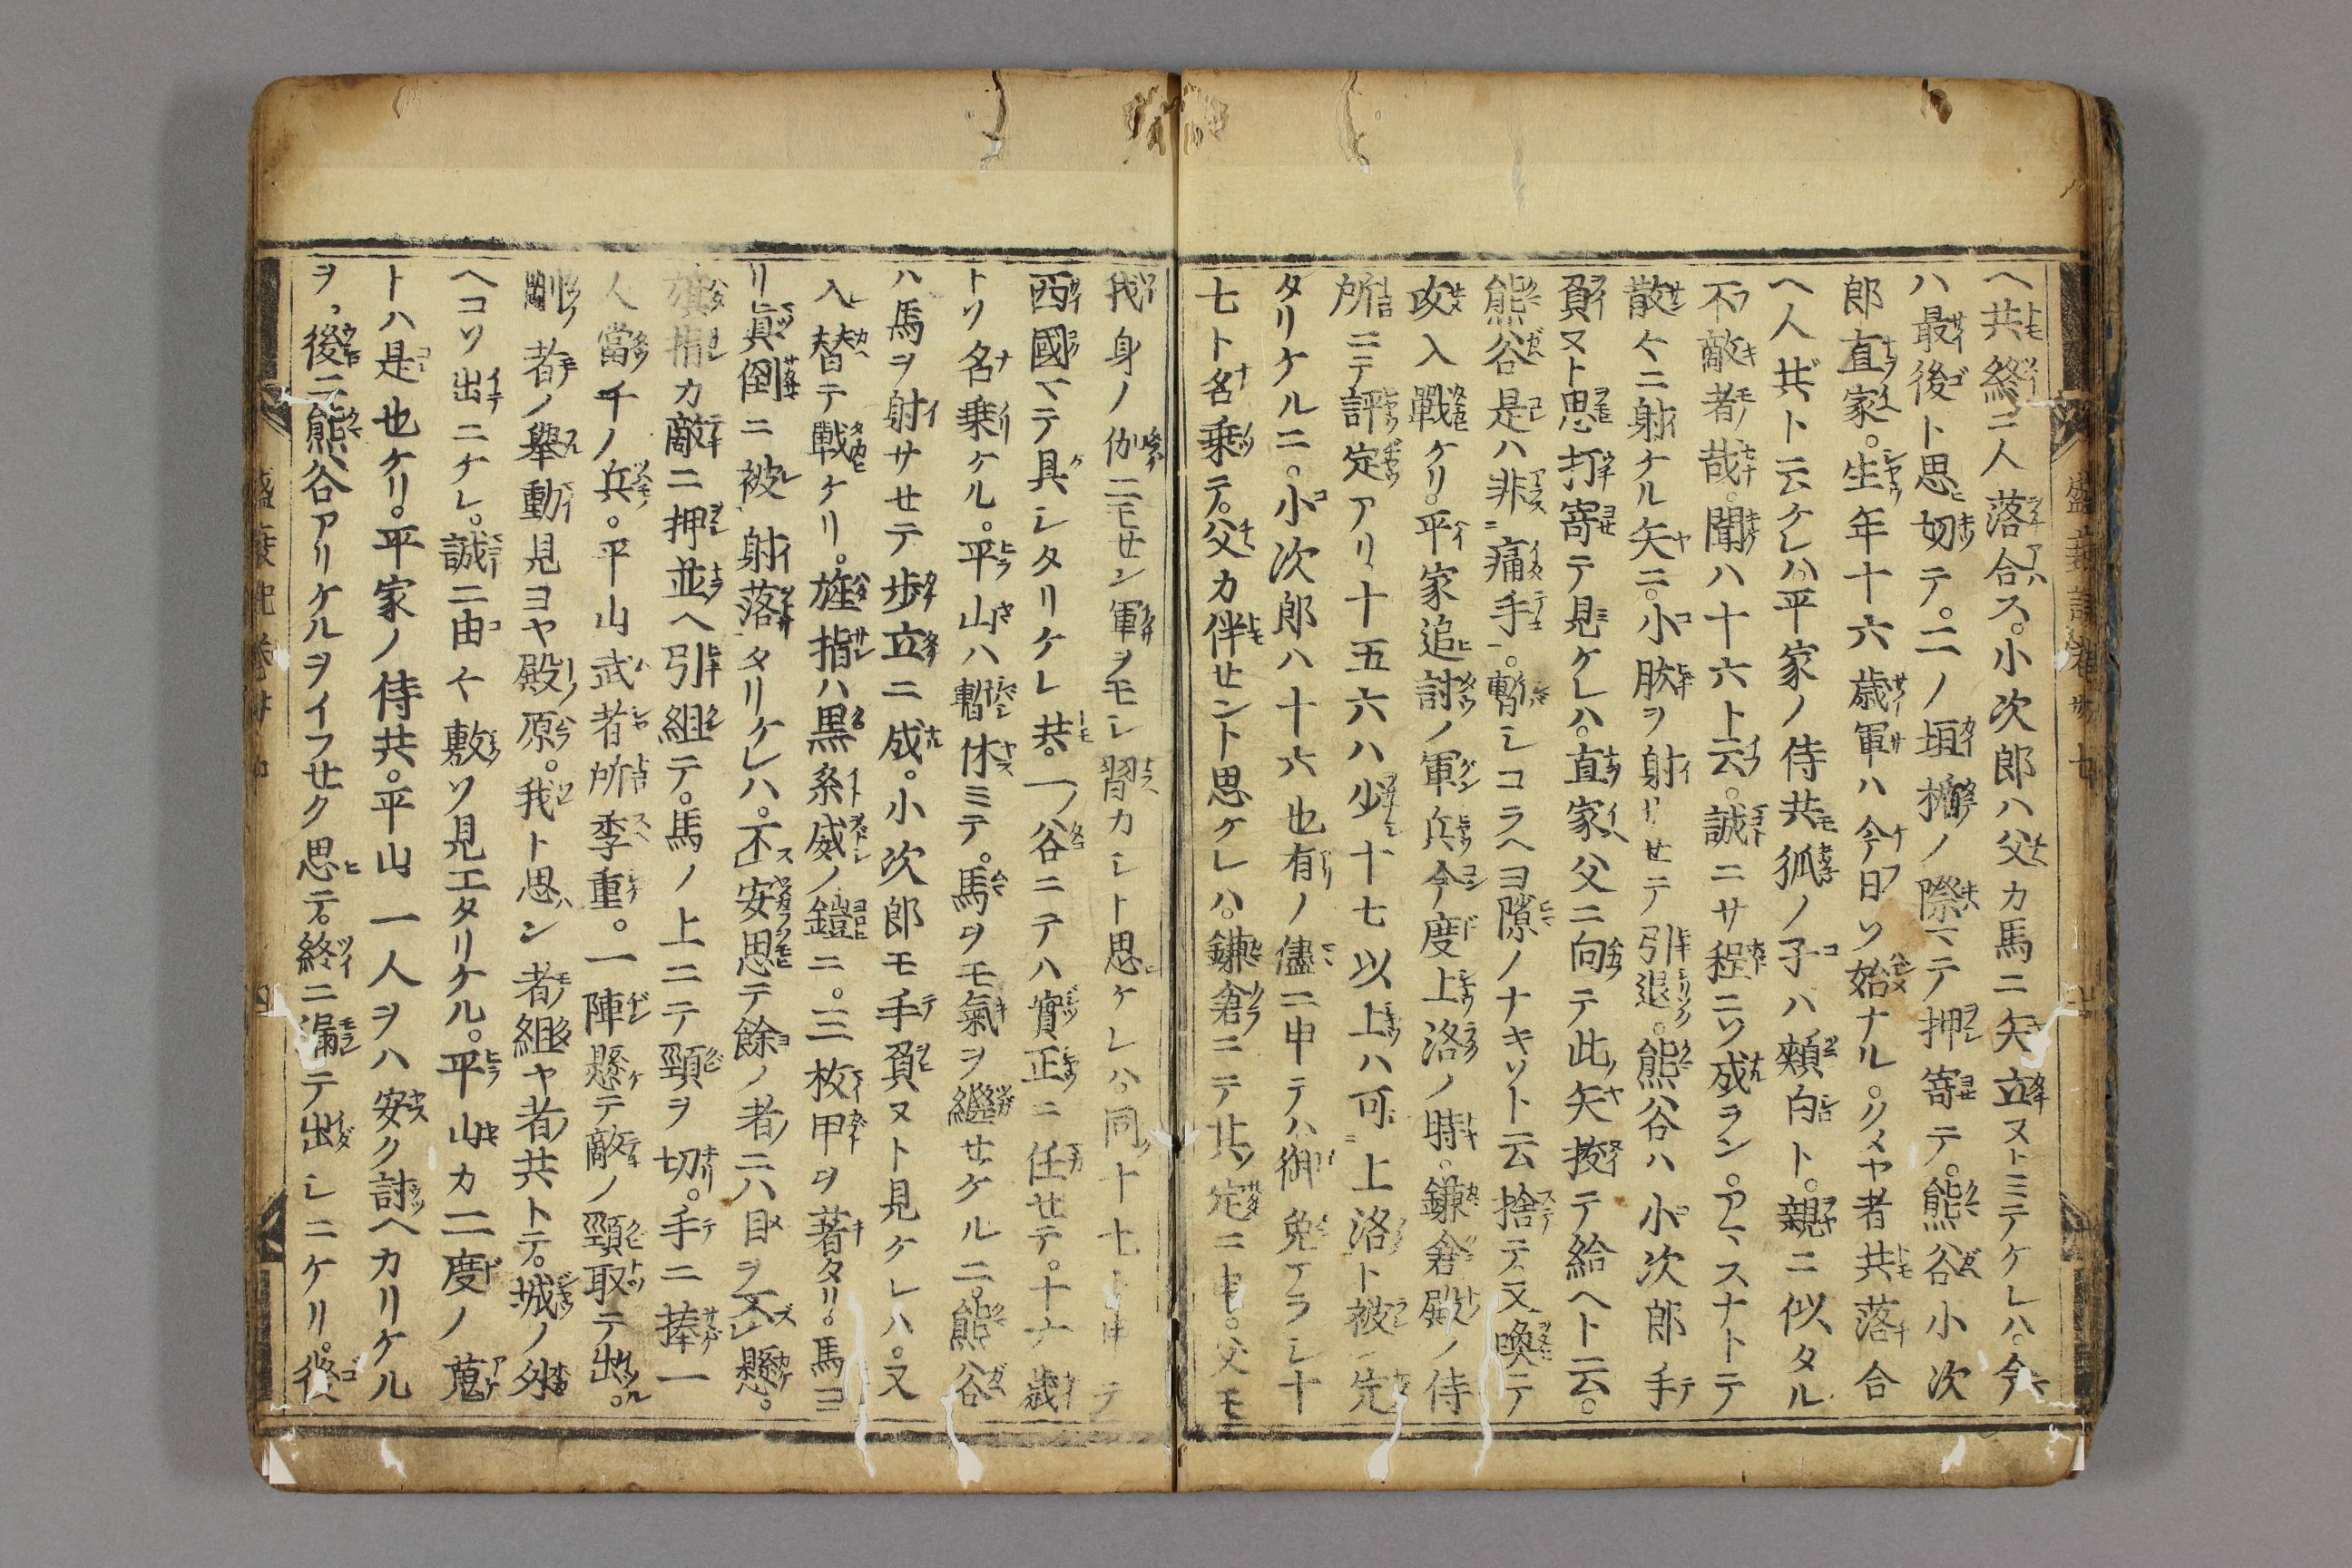 ヘ共終ニ人落合ス。小次郎ハ父カ馬ニ矢立ヌトミテケレハ。今
ハ最後ト思切テ。二ノ垣楯ノ際マテ押寄テ。熊谷小次
郎直家。生年十六歳軍ハ今日ソ始ナル。クメヤ者共落合
ヘ人共ト云ケレハ。平家ノ侍共狐ノ子ハ頬白ト。親ニ似タル
不敵者哉。聞ハ十六ト云。誠ニサ程ニソ成ラン。アマスナトテ
散々ニ射ケル矢ニ。小肱ヲ射サセテ引退。熊谷ハ小次郎手
負ヌト思打寄テ見ケレハ。直家父ニ向テ此矢抜テ給ヘト云。
熊谷是ハ非痛手。暫シコラヘヨ隙ノナキソト云捨テ又喚テ
攻入戰ケリ。平家追討ノ軍兵今度上洛ノ時。鎌倉殿ノ侍
所ニテ評定アリ十五六ハ少十七以上ハ可上洛ト被先
タリケルニ。小次郎ハ十六也有ノ儘ニ申テハ御免アラシ十
七ト名乗テ。父カ伴セント思ケレハ。鎌倉ニテ其定ニ申。父モ
我身ノ伽ニモセン軍ヲモシ習カシト思ケレハ。同十七ト申テ
西國マテ具シタリケレ共。一ノ谷ニテハ實正ニ任セテ。十六歳
トソ名乗ケル。平山ハ暫休ミテ。馬ヲモ氣ヲ繼セケルニ。熊谷
ハ馬ヲ射サセテ歩立ニ成。小次郎モ手負ヌト見ケレハ。又
入替テ戰ケリ。旌指ハ黒糸威ノ鎧ニ。三枚甲ヲ著タリ。馬ヨ
リ眞倒ニ被射落タリケレハ。不安思テ餘ノ者ニハ目ヲ不懸。
旗指カ敵ニ押並ヘ引組テ。馬ノ上ニテ頸ヲ切。手ニ捧一
人當千ノ兵。平山武者所季重。一陣懸テ敵ノ頸取テ出。
剛者ノ擧動見ヨヤ殿原。我ト思ン者組ヤ者共トテ。城ノ外
ヘコソ出ニケレ。誠ニ由々敷ソ見エタリケル。平山カ二度ノ蒐
トハ是也ケリ。平家ノ侍共。平山一人ヲハ安ク討ヘカリケル
ヲ、後ニ熊谷アリケルヲイフセク思テ。終ニ漏テ出シニケリ。後